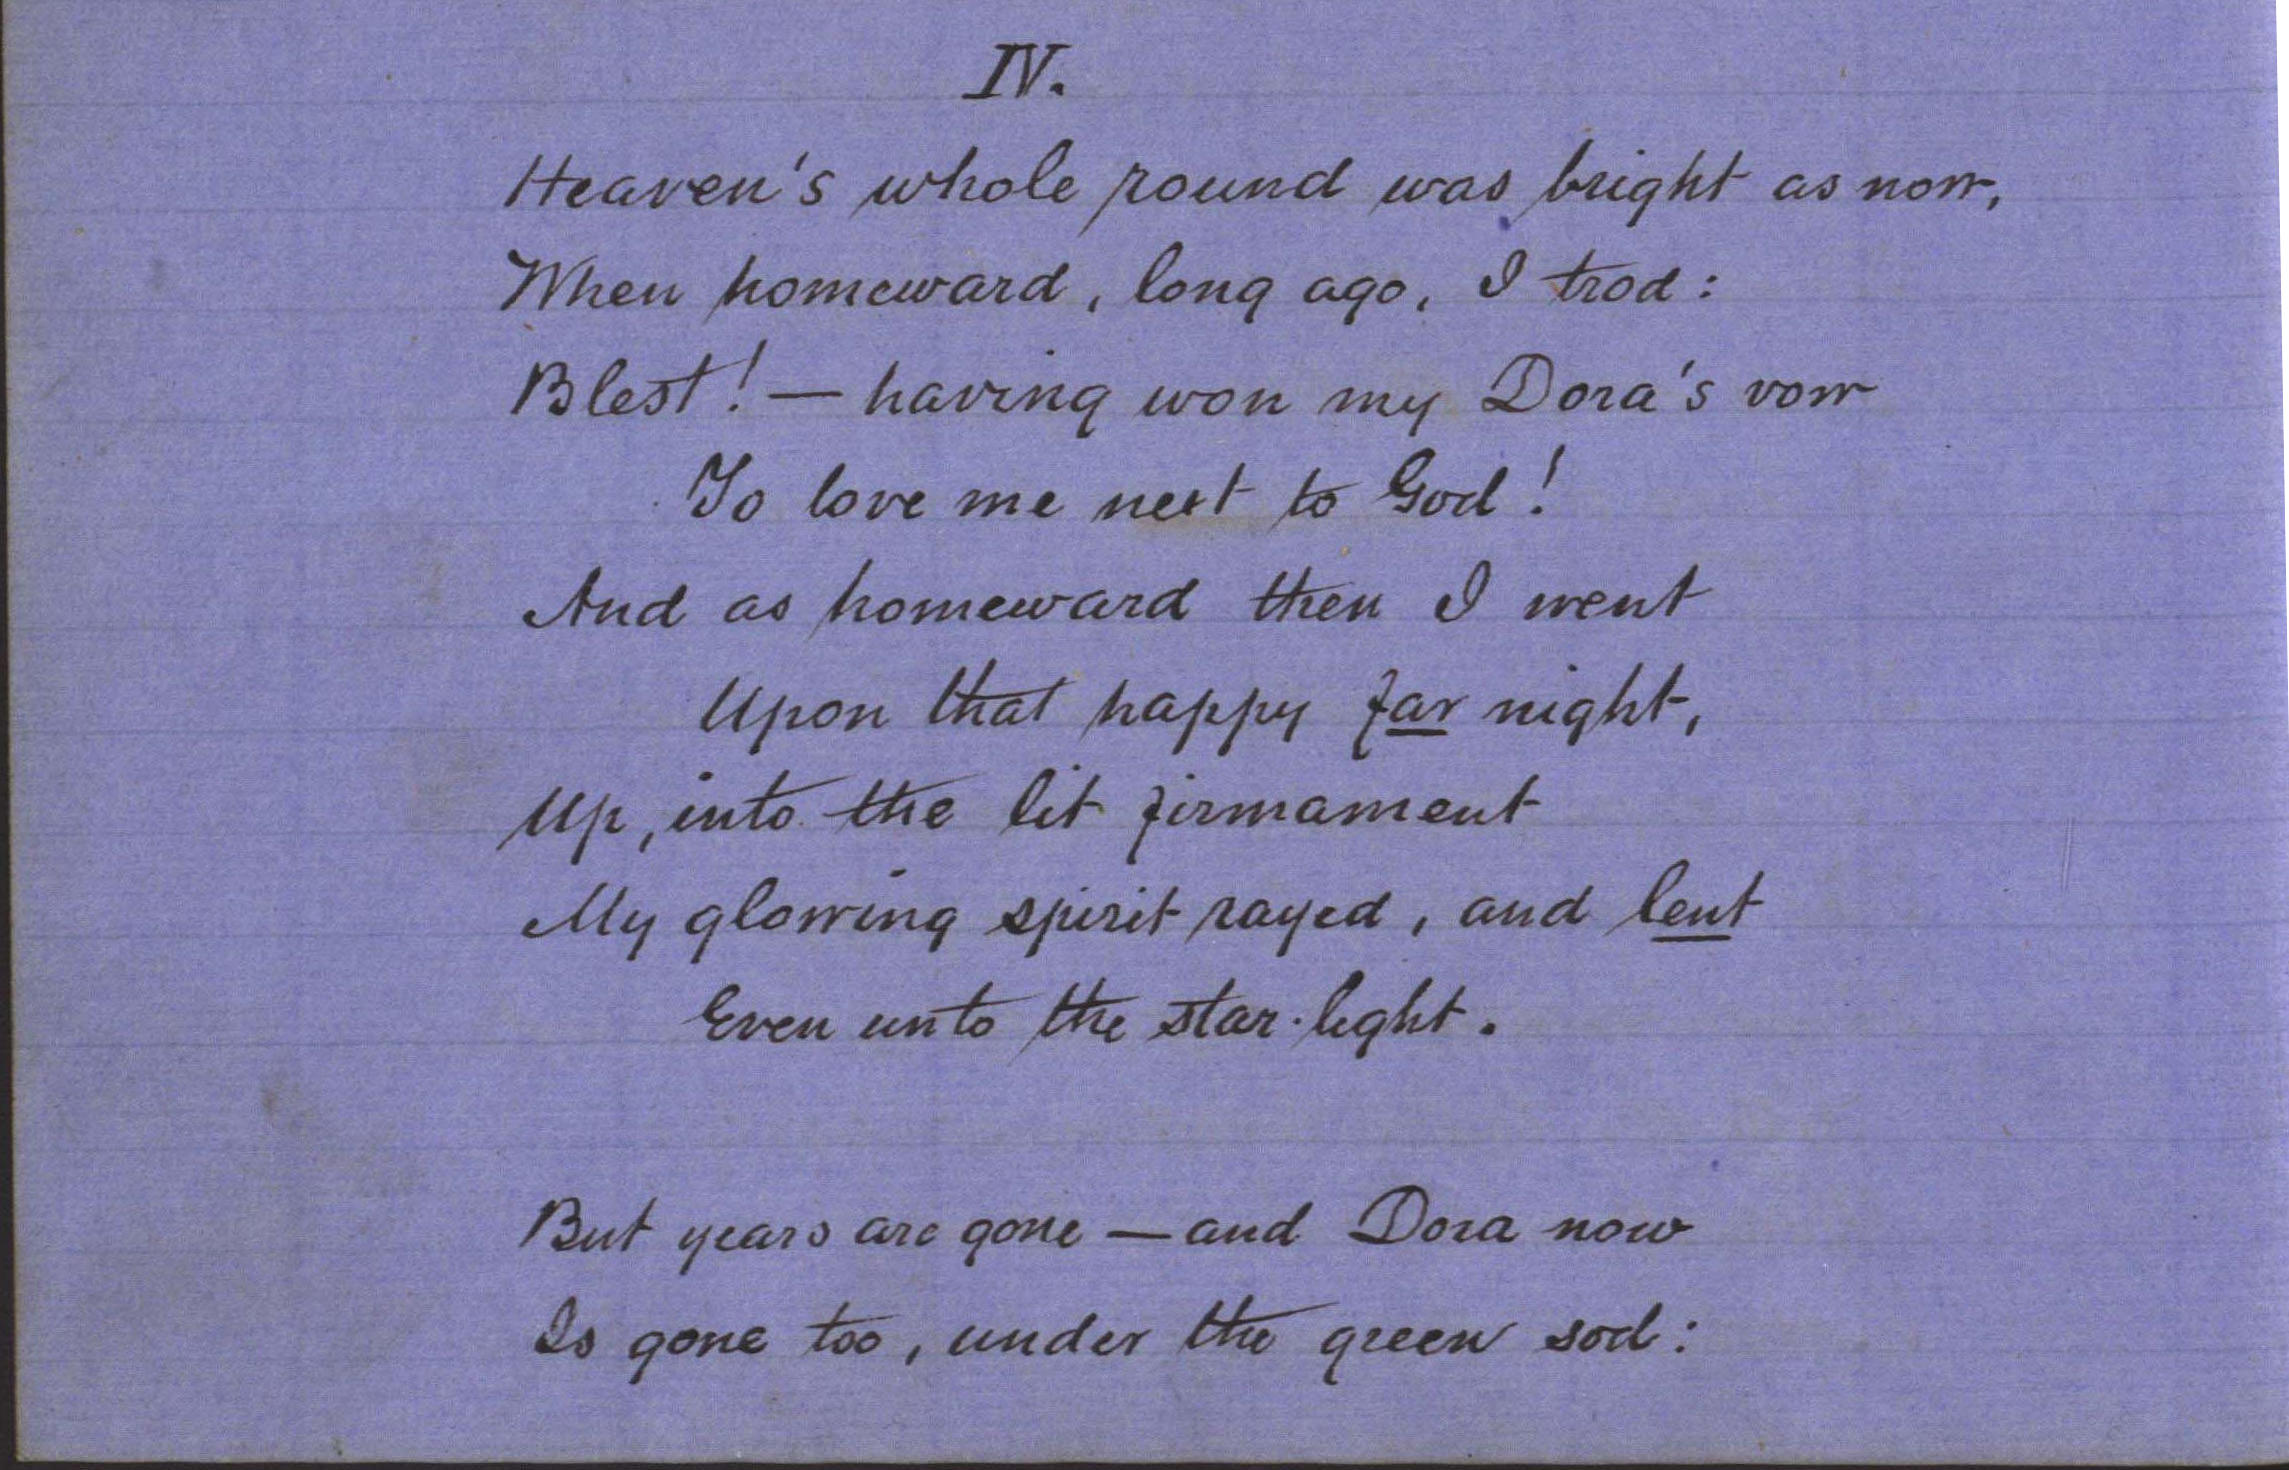 IV.
Heaven's whole round was bright as now,
When homeward, long ago, I trod:
Blest! — having won my Dora's vow
To love me next to God!
And as homeward then I went
Upon that happy far night,
Up, into the lit firmament
My glowing spirit rayed, and lent
Even unto the star-light.
But years are gone — and Dora now
Is gone too, under the green sod: